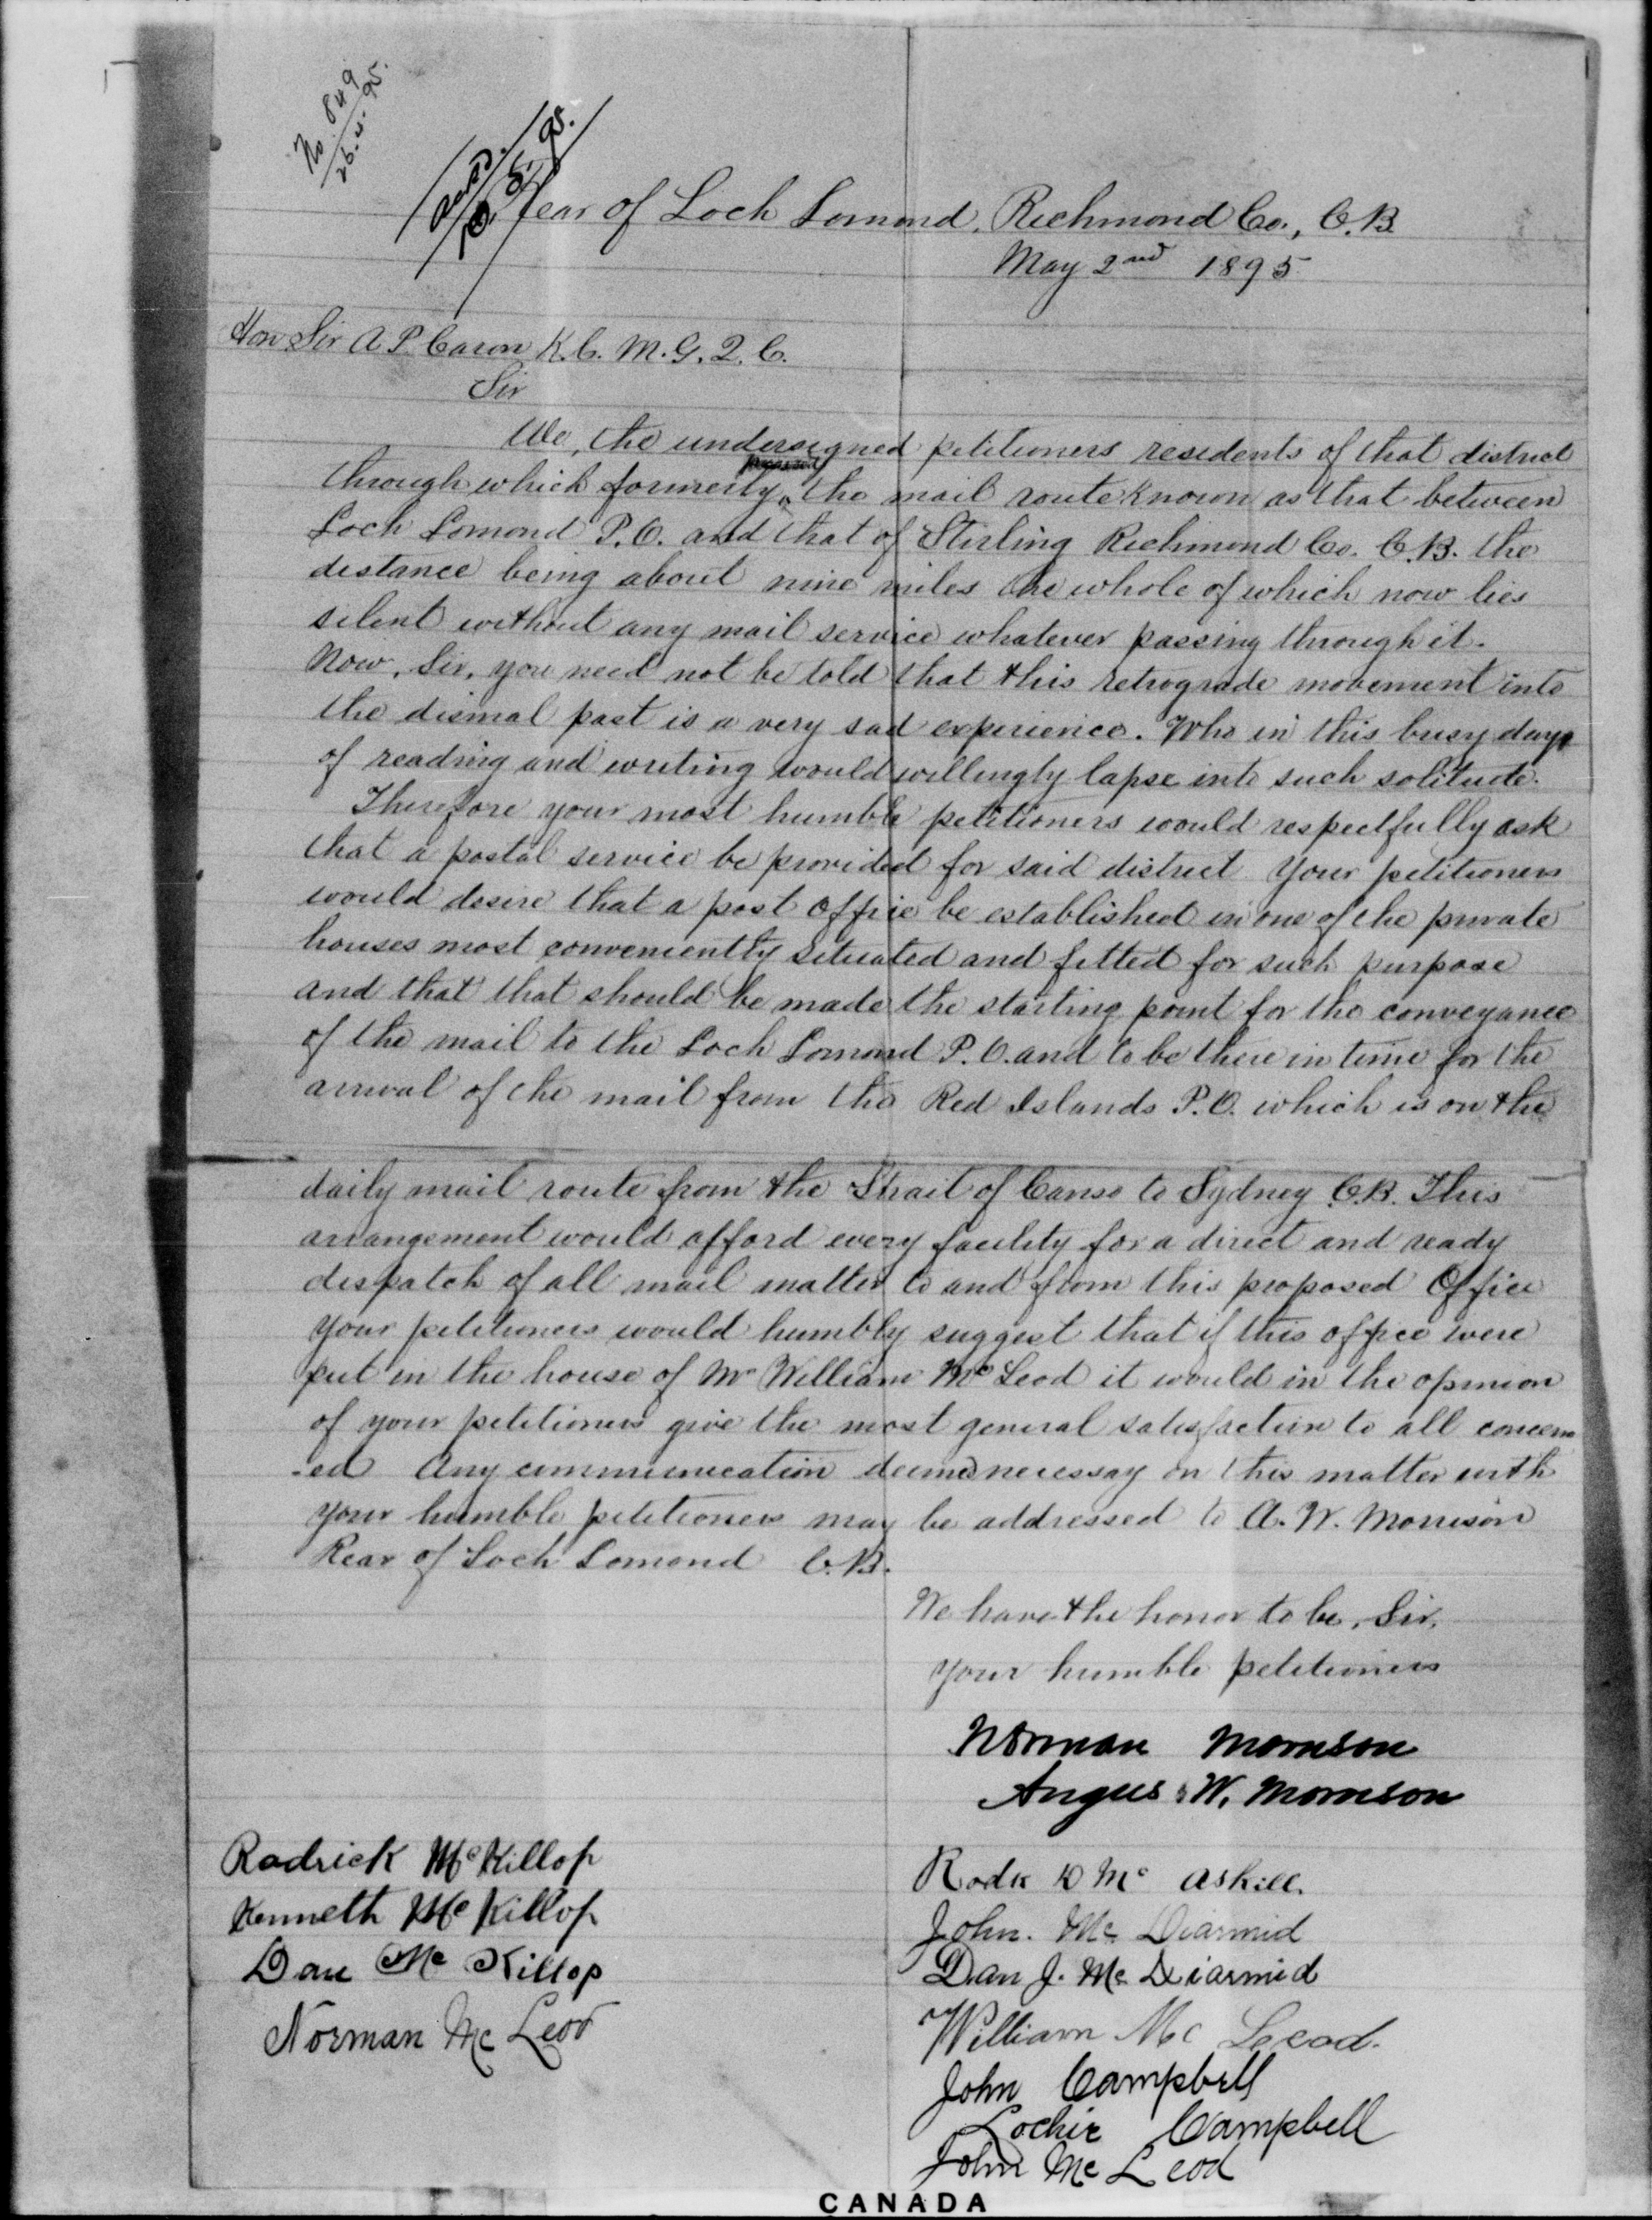 No. 849
26.4.95.
Rear of Loch Lomond, Richmond Co., C.B.
May 2nd 1895
Hon Sir A P. Caron K.C.M.G. Q.C.
Sir
We, the undersigned petitioners residents of that district
through which formerly passed the mail route known as that between
Loch Lomond P.O. and that of Stirling Richmond Co. C.B. the
distance being about nine miles the whole of which now lies
silent without any mail service whatever passing through it.
Now, Sir, you need not be told that this retrograde movement into
the dismal past is a very sad experience. Who in this busy days
of reading and writing would willingly lapse into such solitude.
Therefore your most humble petitioners would respectfully ask
that a postal service be provided for said district Your petitioners
would desire that a post Office be established in one of the private
houses most conveniently situated and fitted for such purpose
and that that should be made the starting point for the conveyance
of the mail to the Loch Lomond P.O. and to be there in time for the
arrival of the mail from the Red Islands P.O. which is on the
daily mail route from the Strait of Canso to Sydney C.B. This
arrangement would afford every facility for a direct and ready
dispatch of all mail matter to and from this proposed Office
Your petitioners would humbly suggest that if this office were
put in the house of Mr William McLeod it would in the opinion
of your petitioners give the most general satisfaction to all concern
-ed Any communication deemed necessay on this matter with
your humble petitioners may be addressed to A. W. Morrison
Rear of Loch Lomond C.B.
We have the honor to be, Sir,
your humble petitioners
Norman Morrison
Angus W. Morrison
Rodrick McKillop
Kenneth McKillop
Dan Mc Killop
Norman Mc Leod
Rodk D Mc Askill.
John. Mc Diarmid
Dan J. Mc Diarmid
William Mc Leod.
John Campbell
Lochie Campbell
John Mc Leod
CANADA